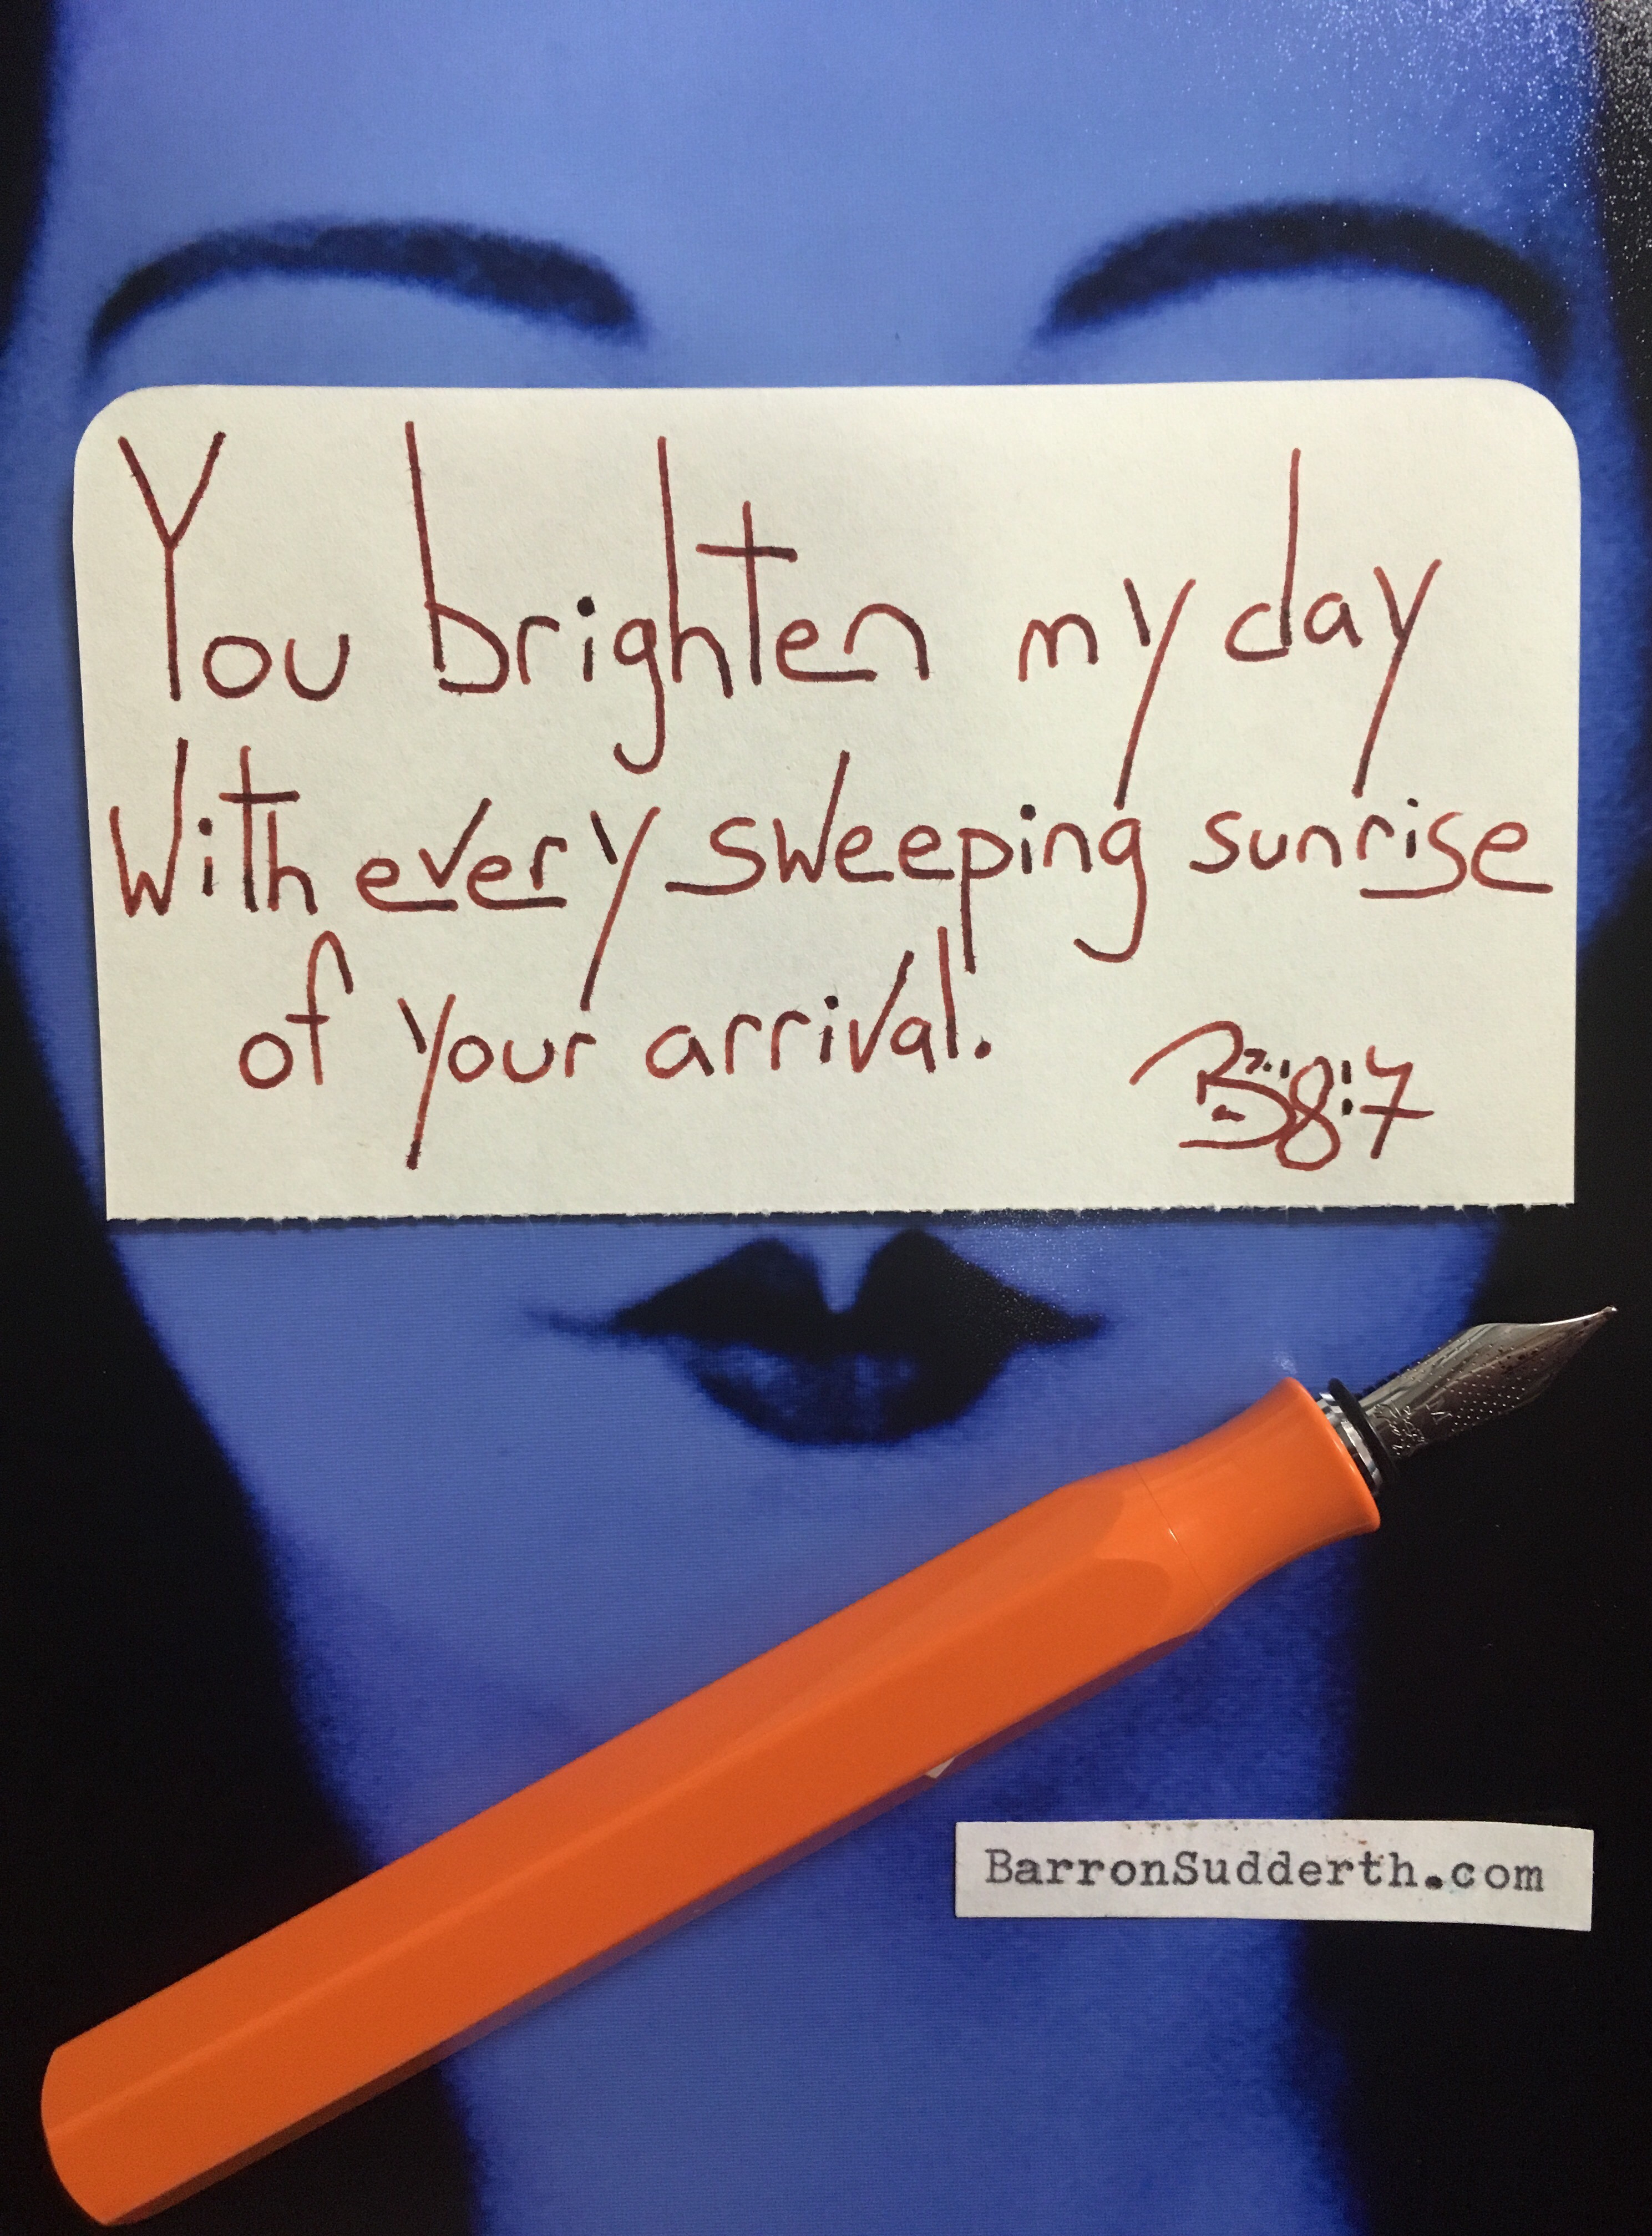 You brighten my day
With every sweeping sunrise
of your arrival.
BarronSudderth.com